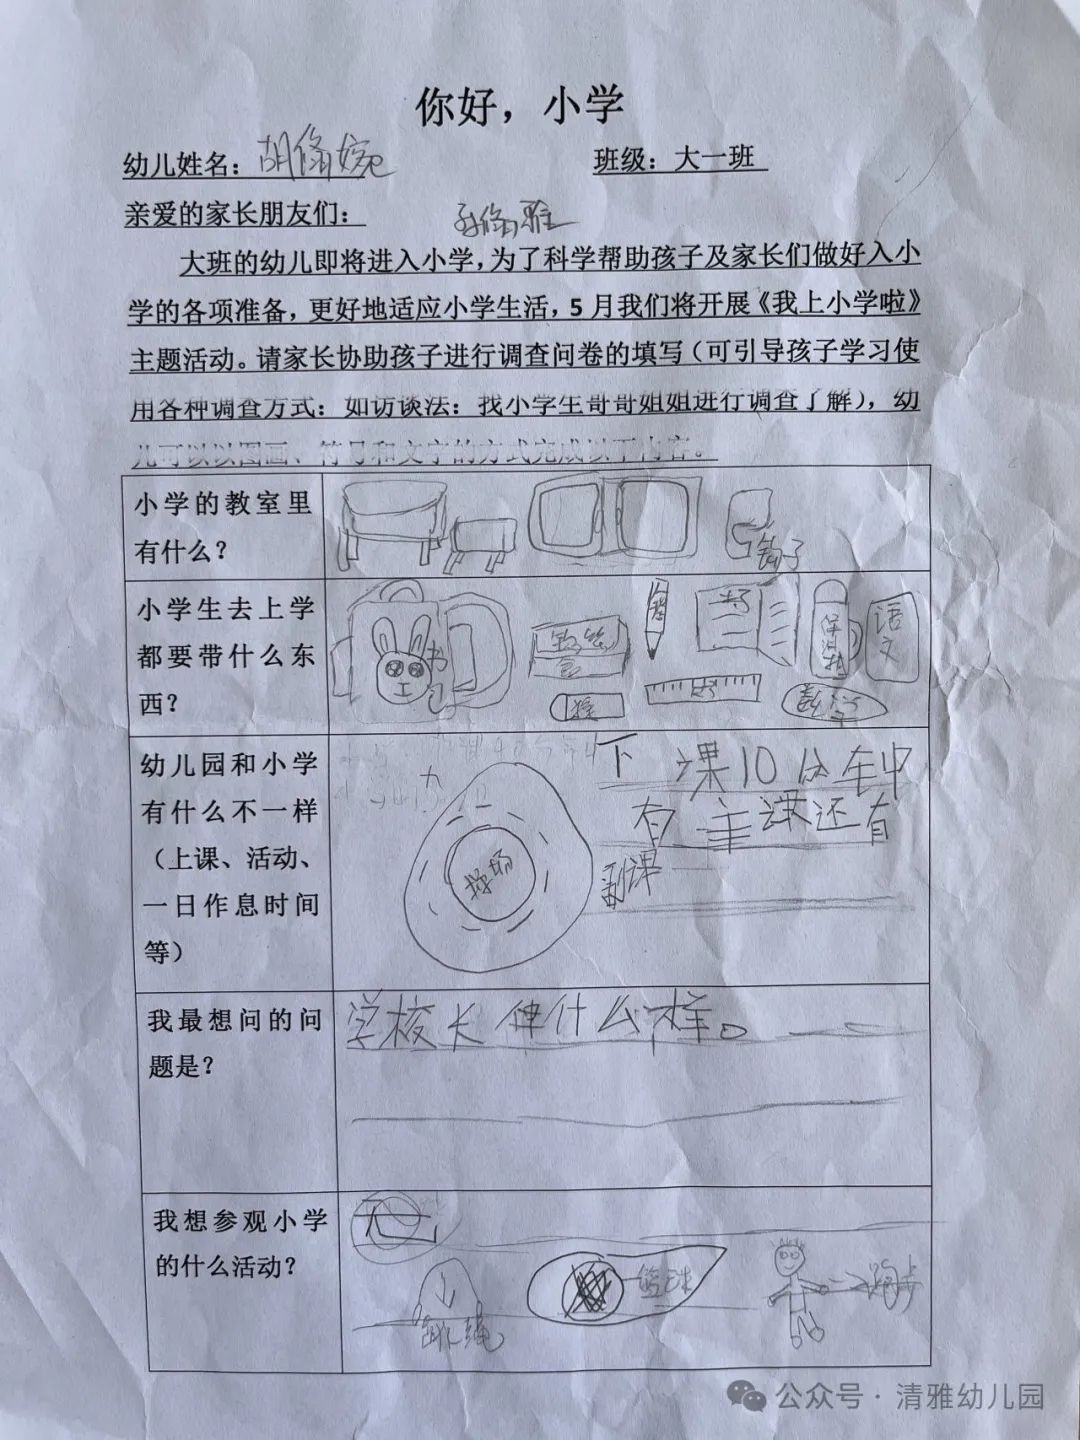 你好，小学
幼儿姓名：胡 班级：大一班
亲爱的家长朋友们：
大班的幼儿即将进入小学，为了科学帮助孩子及家长们做好入小
学的各项准备，更好地适应小学生活，5月我们将开展《我上小学啦》
主题活动。请家长协助孩子进行调查问卷的填写（可引导孩子学习使
用各种调查方式：如访谈法：找小学生哥哥姐姐进行调查了解），幼
儿可以以图画、符号和文字的方式完成以下内容。
小学的教室里
有什么？
子
小学生去上学
都要带什么东
西？
书
语
文
数学
幼儿园和小学
有什么不一样
（上课、活动、
一日作息时间
等）
操场
下课10分钟
有主课还有
副课
我最想问的问
题是？
学校长什么样。
我想参观小学
的什么活动？
跳绳
篮球
跑步
公众号·清雅幼儿园